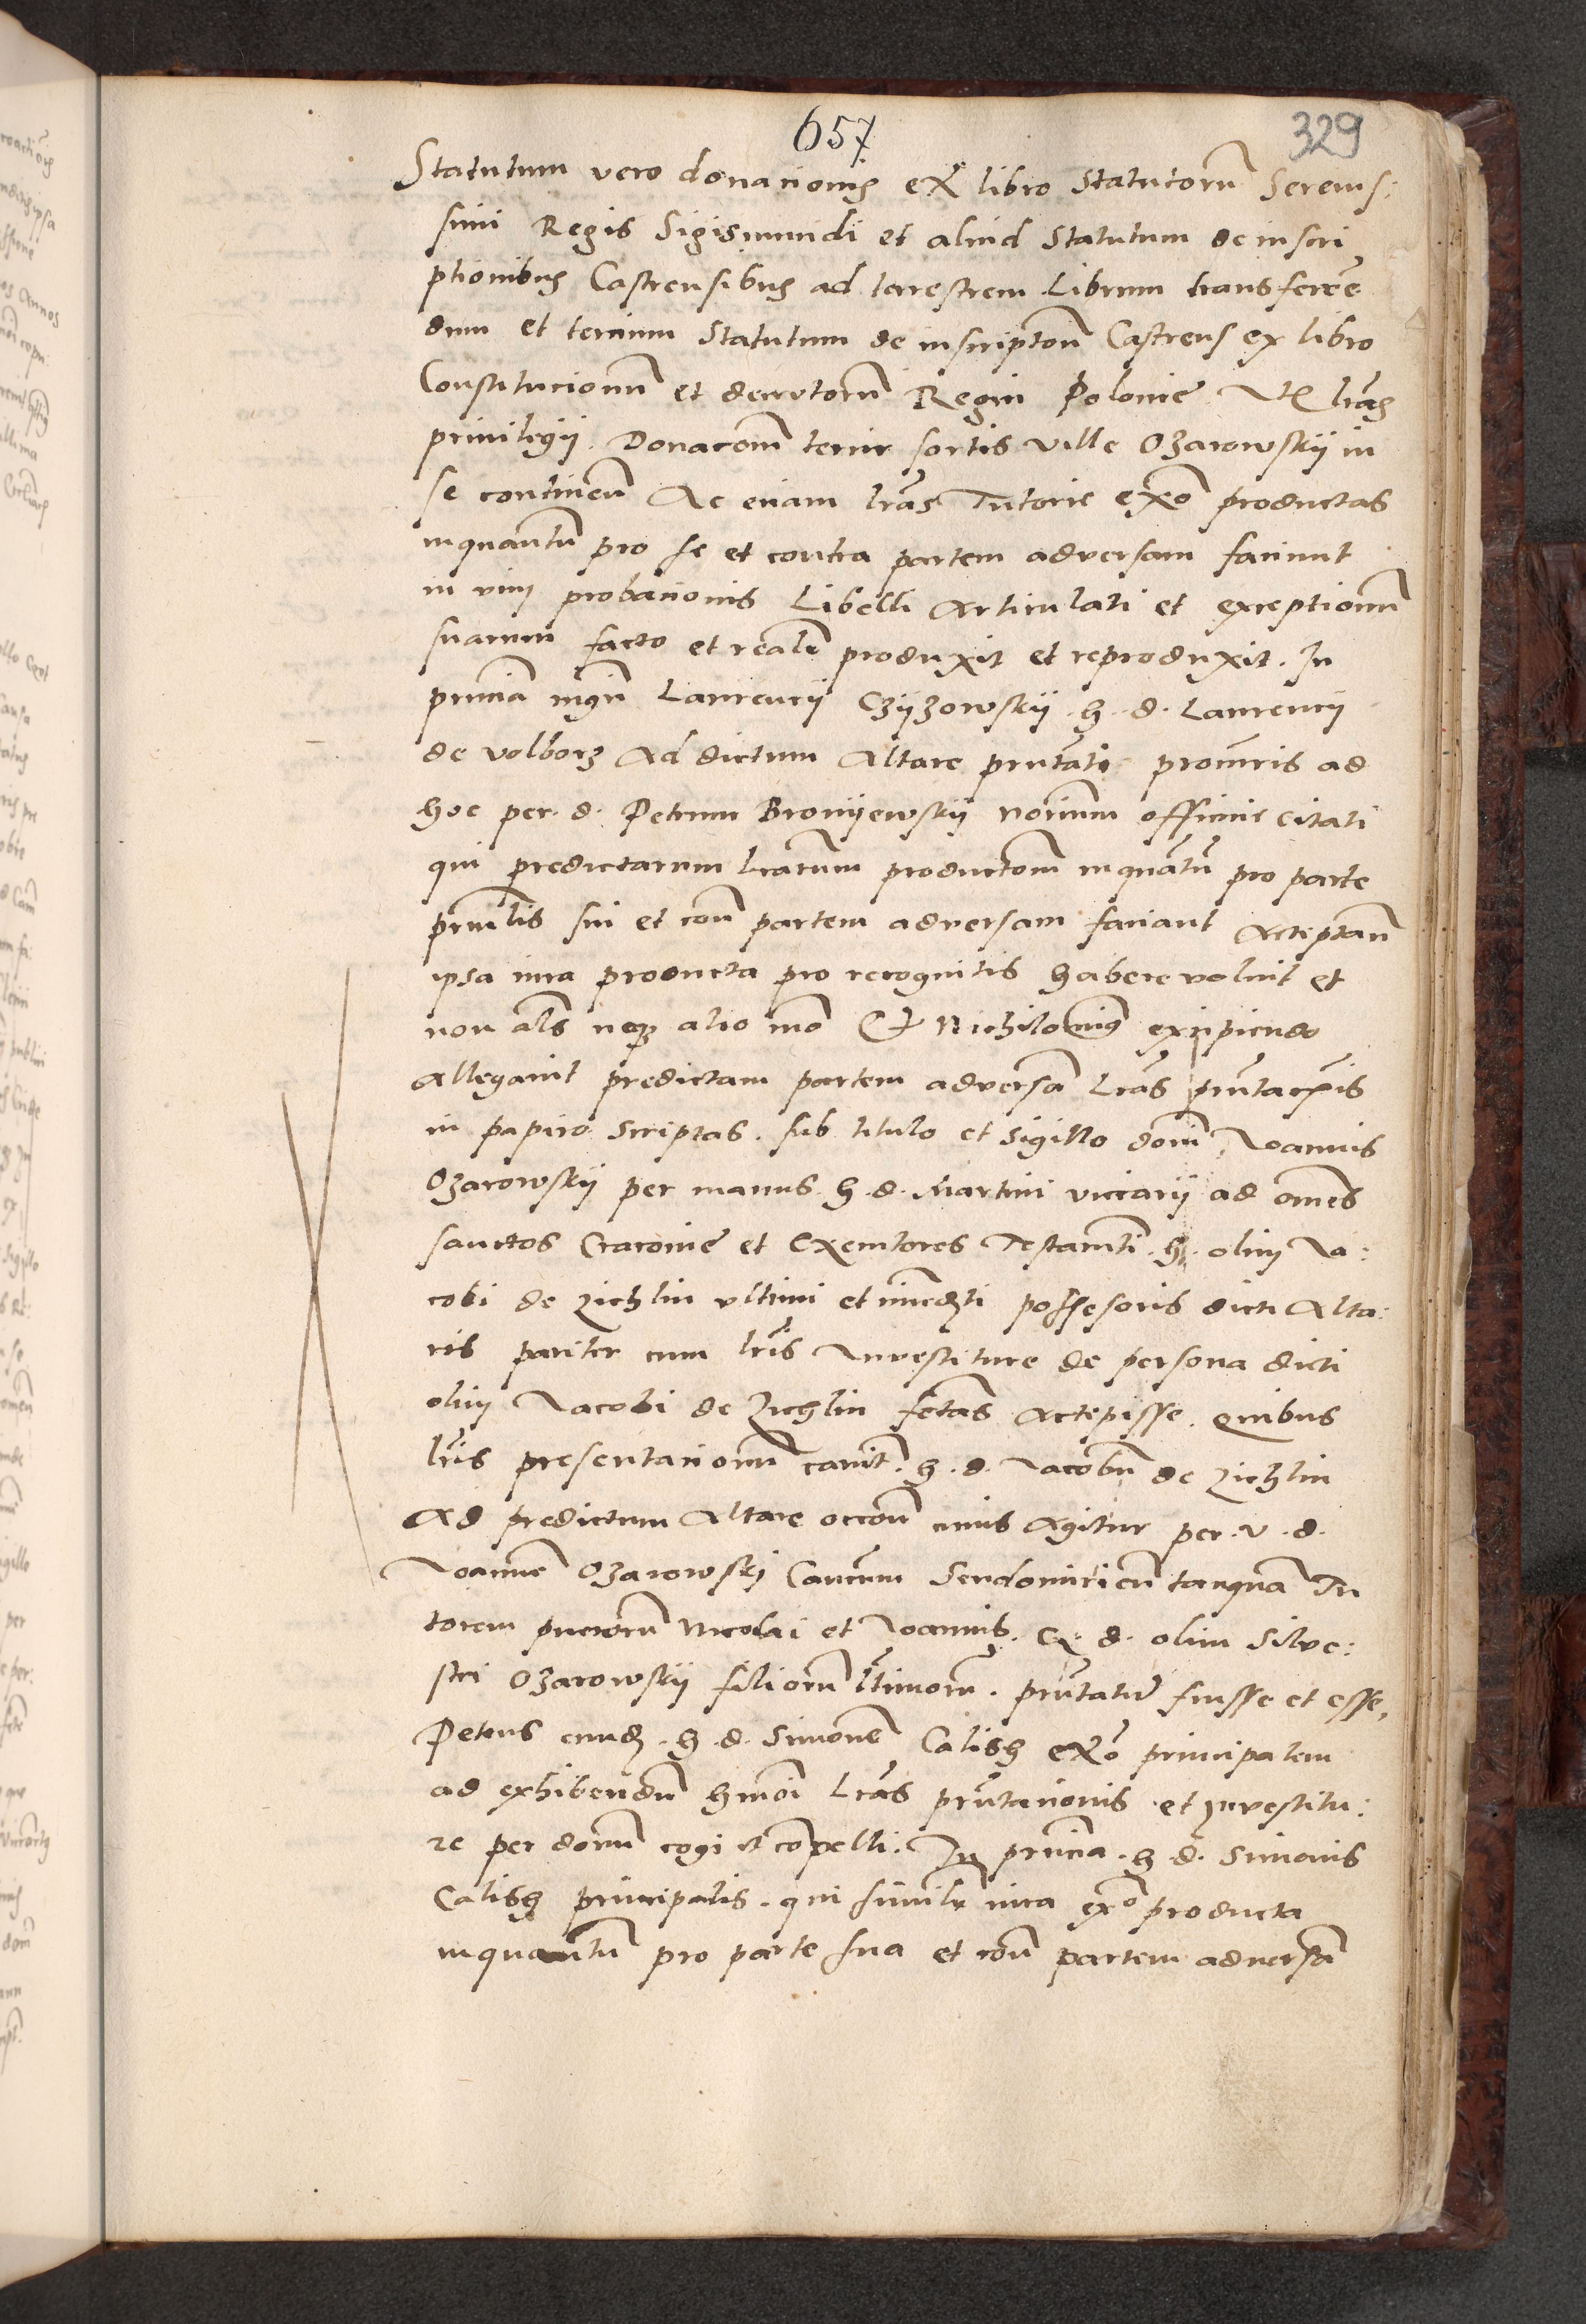 657
329
Statutum vero donacionis ex libro Statutorũ Serenis:
simi Regis Sigismundi et aliud Statutum de inscri
ptionibus Castrensibus ad terrestrem Librum transferrẽ
dum et tercium Statutum de inscriptoñ Castrens ex libro
Constitucionũ et decretorũ Regni Polonie lr̃as
privilegii Donacoñm ville Ozarowskij in
se continen̄ Ac eciam lr̃as Tutorie exõ productas
inquantũ pro se et contra partem adversam faciunt
in vim probacionis Libelli Articulati et exceptionũ
suarum facto et realr̃ produxit et reproduxit. In
pñcia mgr̃i Laurencij Czijzowskij h. d. Laurencij
de Volborz Ad dictum Altare pñtati procuratoris ad
hoc per d. Petrum Bronijewskij officii citati
qui predictarum lr̃arum productoñm inquãtũ pro parte
pñcipalis sui et coñ partem adversam faciant Acceptañ
ipsa iura producta pro recognitis habere voluit et
non al̃s neq3 alio mõ Et Nichilominus excipiendo
Allegavit predictam partem adversã Lr̃as pñtacõis
in papiro scriptas. sub titulo et sigillo doñi Joannis
Ozarowskij per manus h. d. Martini vicarij ad om̃es
sanctos Cracovie et Executores Testamẽti h. olim Ja:
cobi de Zichlin ultimi et possessoris dicti Alta:
ris pariter cum lr̃is Investiture de persona dicti
olim Jacobi de Zichlin fc̃tas Accepisse. Quibus
lr̃is presentacionũ h. d. Jacobũ de Zichlin
Ad predictum Altare occoñ cuius Agitur per v. d.
Joannẽ Ozarowskj Sendomirieñ tanquã Tu
torem puerorũ Nicolai et Joannis. G. d. olim Silve:
stri Ozarowskij filiorũ lt̃timorũ. pñtatũ fuisse et esse,
Petens eund. h. d. Simonẽ Calish exõ principalem
ad exhibendũ hmõi Lr̃as pñtacionis et Investitu:
re per doñm cogi et compelli. In pñcia. h. d. Simonis
Calish principalis. qui similr̃ iura exõ producta
inquantũ pro parte sua et coñ partem adversã